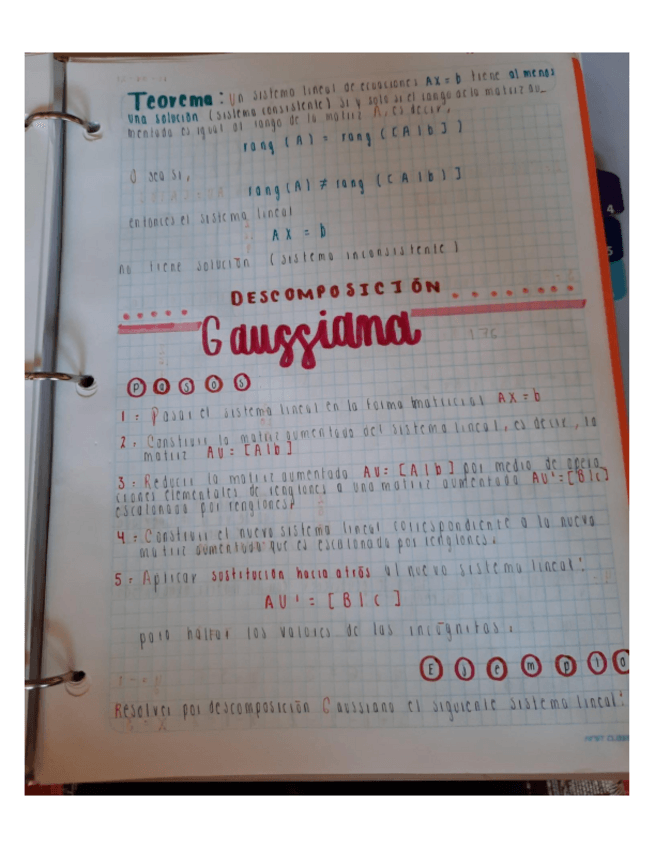 Teorema: Un sistema lineal de ecuaciones AX = b tiene al menos
una solución (sistema consistente) si y solo si el rango de la matriz au-
mentada es igual al rango de la matriz A, es decir,
rang (A) = rang ([A|b])
O sea si,
rang(A) ≠ rang ([A|b)]
entonces el sistema lineal
AX = b
no tiene solución (sistema inconsistente)
DESCOMPOSICIÓN
Gaussiana
Pasos
1: Pasar el sistema lineal en la forma matricial AX = b
2. Construir la matriz aumentada del sistema lineal, es decir, la
matriz AU = [A|b]
3: Reducir la matriz aumentada AU = [A|b] por medio de opera
ciones elementales de renglones a una matriz aumentada AU' = [B|c]
escalonada por renglones.
4: Construir el nuevo sistema lineal correspondiente a la nueva
matriz aumentada que es escalonada por renglones.
5: Aplicar sustitución hacia atrás al nuevo sistema lineal:
AU' = [B|c]
para hallar los valores de las incógnitas.
Ejemplo
Resolver por descomposición Gaussiana el siguiente sistema lineal:
4
5